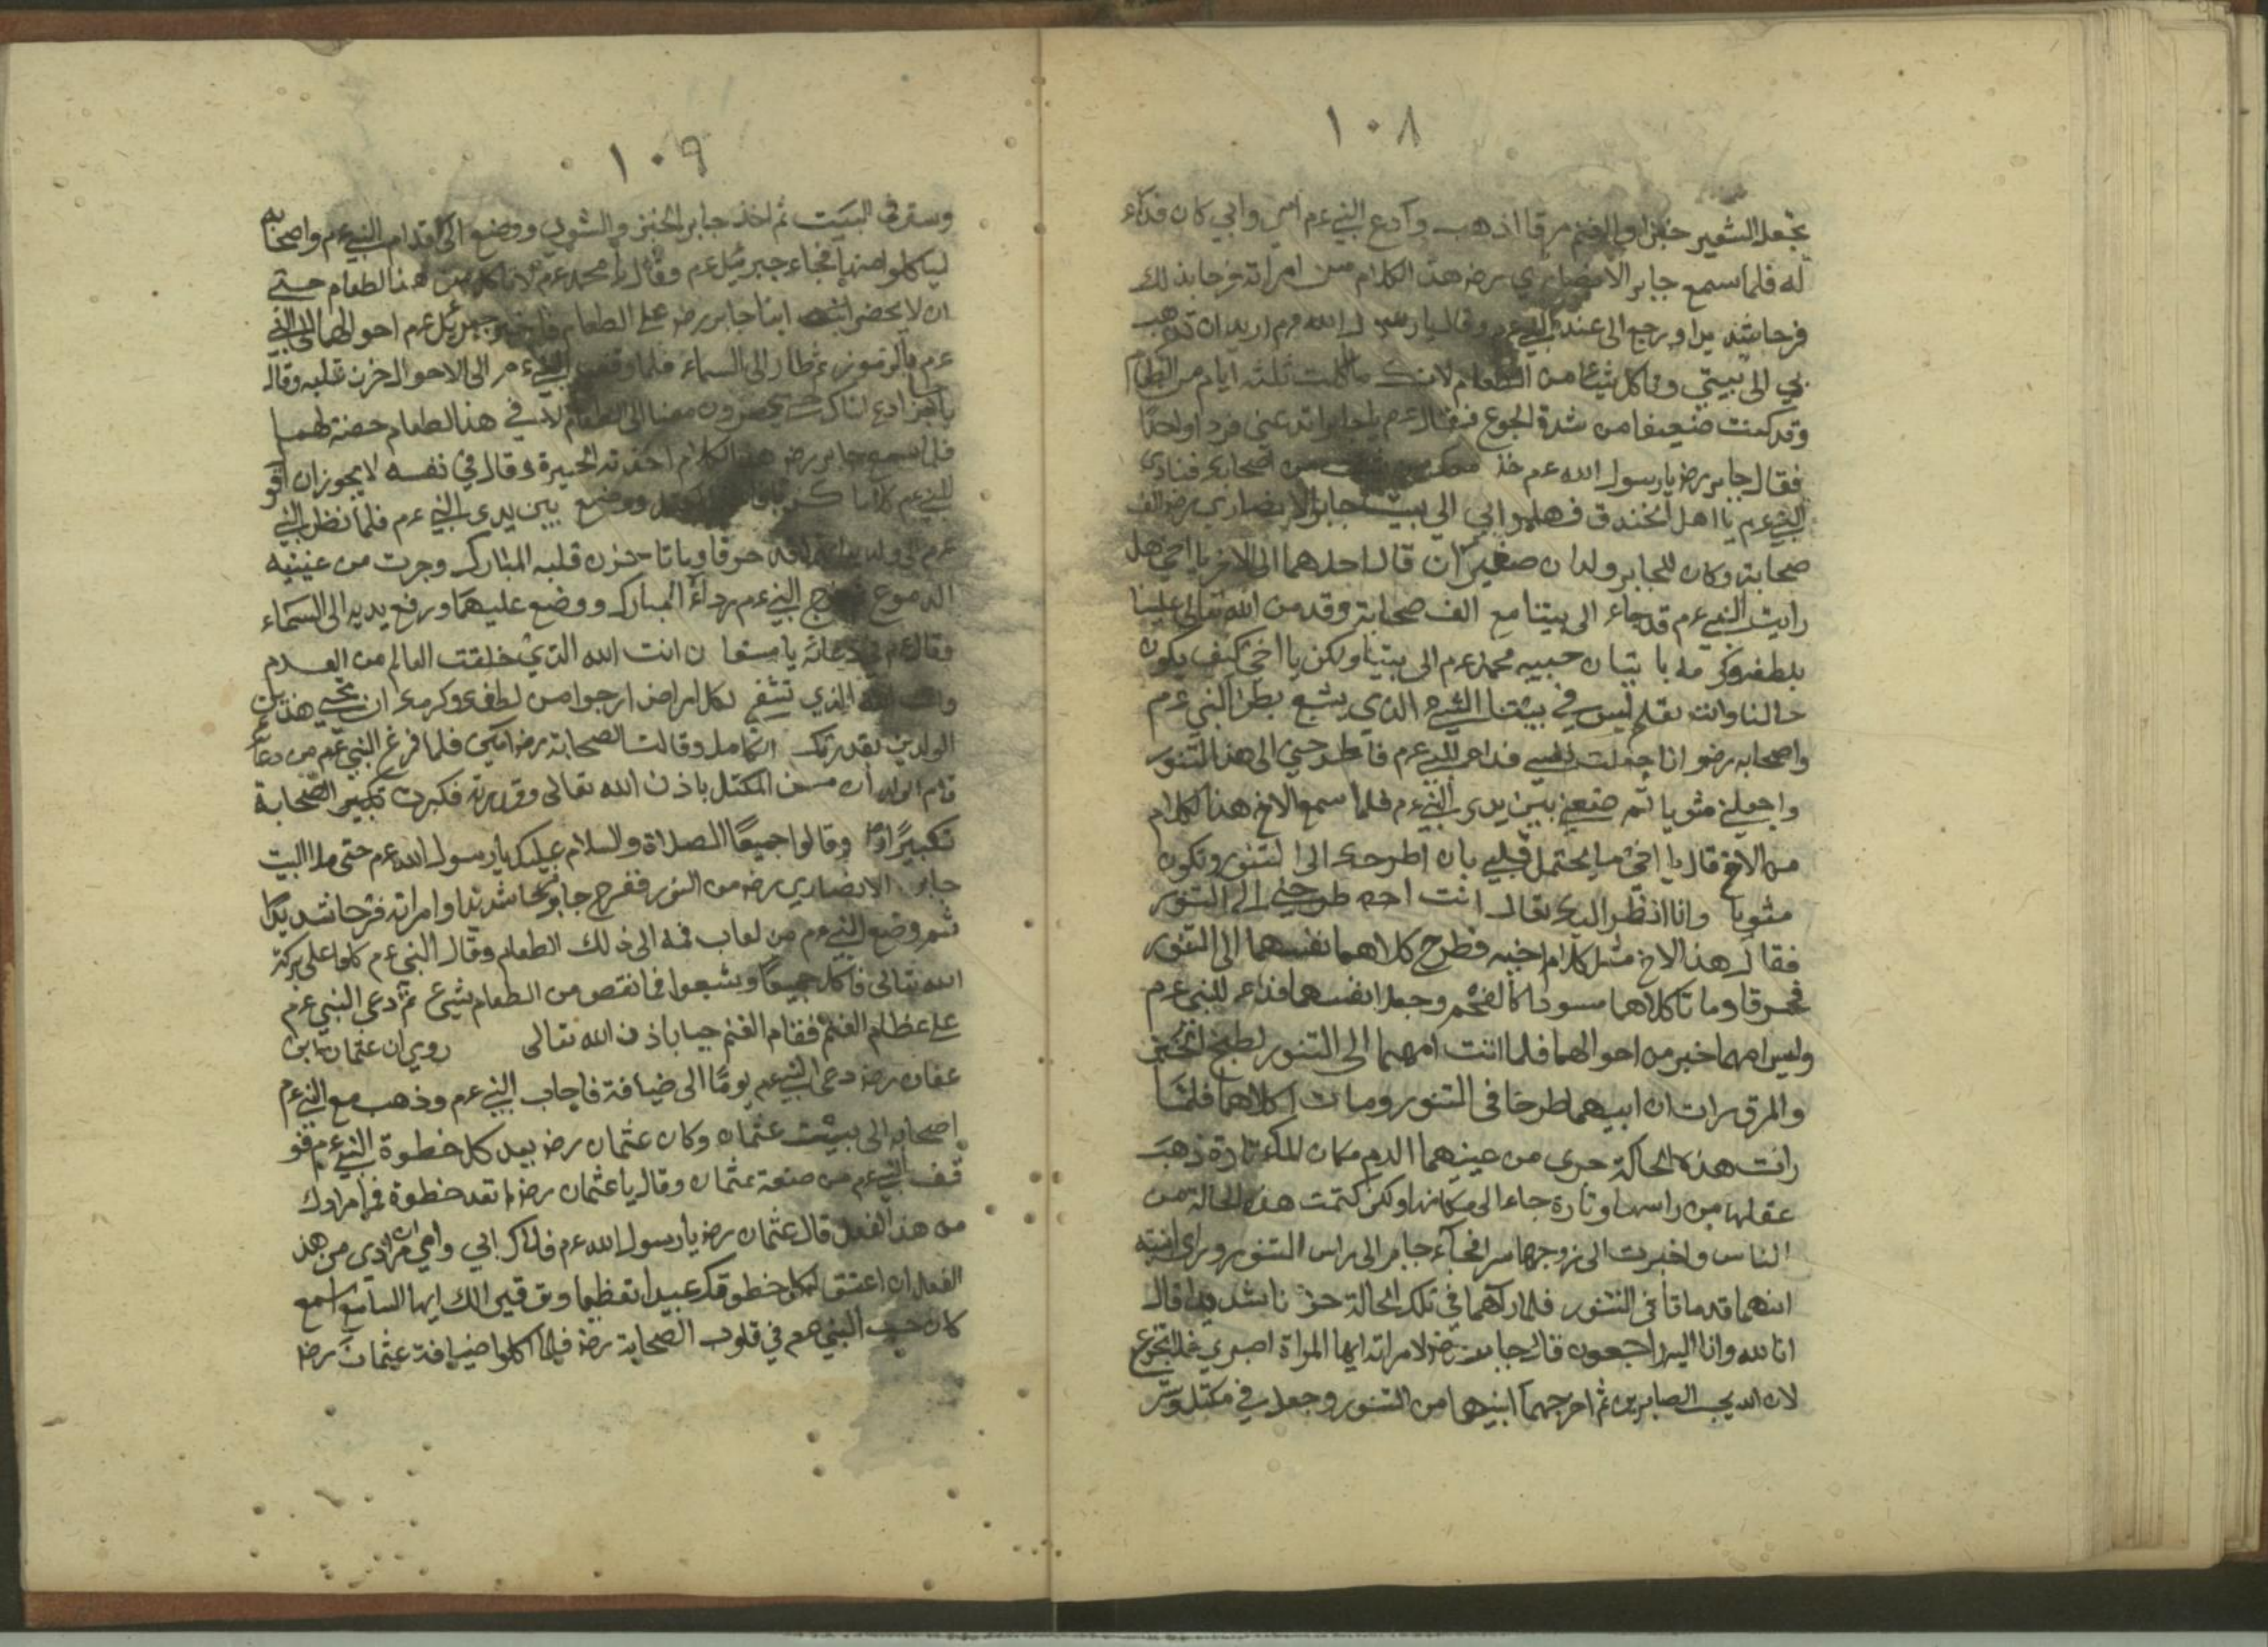 ١٠٨
نجعل الشعير خبزا والغنم مرقا اذهب وادع النبي ءم امي وابي كان فداء
له فلما سمع جابر الانصاري رضه هذا الكلام من امراته فرحا بذلك
فرحا شديدا ورجع الى عند النبي ءم وقال يا رسول الله ءم اريد ان تذهب
بي الى بيتي وتاكل شيئا من الطعام لانك ما اكلت ثلثه ايام من الطعام
وقد كنت ضعيفا من شدة الجوع فقال ءم يا جابر اتدعني فردا واحدا
فقال جابر رضه يا رسول الله ءم خذ معك من اصحابك فنادى
النبي ءم يا اهل الخندق فهلموا بي الى بيت جابر الانصاري رضه الف
صحابة وكان للجابر ولدان صغيران قال احدهما الى الاخر يا اخي هل
رايت النبي ءم قد جاء الى بيتنا مع الف صحابة وقد من الله تعالى علينا
بلطفه وكرمه باتيان حبيبه محمد ءم الى بيتنا ولكن يا اخي كيف يكون
حالنا وانت تعلم ليس في بيتنا الشيء الذي يشبع بطن النبي ءم
واصحابه رضه وانا جعلت نفسي فداء للنبي ءم فاطرحني الى هذا التنور
واجعلني مشويا ثم ضعني بين يدي النبي ءم فلما سمع الاخ هذا الكلام
من الاخ قال يا اخي ما يحتمل قلبي بان اطرحك الى التنور وتكون
مشويا وانا انظر اليك تقال انت اخه طرحني الى التنور
فقال هذا الاخ مثل كلام اخيه فطرح كلاهما نفسهما الى التنور
فحرقا وماتا كلاهما مسودا كالفحم وجعلا نفسهما فداء للنبي ءم
وليس امهما خبر من احوالهما فلما اتت امهما الى التنور لطبخ الخبز
والمرق رات ان ابنيهما طرحا في التنور ومات كلاهما فلما
رات هذه الحالة جرى من عينيهما الدم مكان الماء تارة ذهب
عقلها من راسها وتارة جاء الى مكانها ولكن كتمت هذه الحالة من
الناس واخبرت الى زوجها سرا فجاء جابر الى راس التنور وراى ابنيه
انهما قد ماتا في التنور فلما رآهما في تلك الحالة حزنا شديدا قال
انا لله وانا اليه راجعون قال جابر رضه لامراته ايها المراة اصبري
لان الله يحب الصابرين ثم اخرجهما ابنيهما من التنور وجعل في مكتل وستر
١٠٩
وستر في البيت ثم اخذ جابر الخبز والشوي ووضع الى اقدام النبي ءم واصحابه
لياكلوا منها فجاء جبرئيل ءم وقال يا محمد ءم لا تاكل من هذا الطعام حتى
ان لا يحضر ابنا جابر رضه على الطعام جبرئيل ءم احوالهما الى النبي
ءم ثم طار الى السماء فلما وقف النبي ءم الى الاحوال حزن قلبه وقال
يا جابر ادع معنا الى الطعام لان في هذا الطعام حصة لهما
فلما سمع جابر رضه هذا الكلام اخذته الحيرة وقال في نفسه لا يجوز ان اقو
للنبي ءم ووضع بين يدي النبي ءم فلما نظر النبي
ءم حرقا وماتا حزن قلبه المبارك وجرت من عينيه
الدموع النبي ءم رداءه المبارك ووضع عليهما ورفع يديه الى السماء
وقال ءم في دعائه يا مستعان انت الله الذي خلقت العالم من العدم
وانت الذي تشفي لكل امراض ارجوا من لطفك وكرمك ان تحيي هذين
الولدين بقدرتك الكاملة وقالت الصحابة رضه آمين فلما فرغ النبي ءم من دعائه
قام الولدان من المكتل باذن الله تعالى وقدرته فكبرت تكبير الصحابة
تكبيرا وقالوا جميعا الصلاة والسلام عليك يا رسول الله ءم حتى ملا البيت
جابر الانصاري رضه من النور ففرح جابر فرحا شديدا وامراته فرحا شديدا
ثم وضع النبي ءم من لعاب فمه الى ذلك الطعام وقال النبي ءم كلوا على بركة
الله تعالى فاكل جميعا وشبعوا فما نقص من الطعام شيئ ثم دعى النبي ءم
على عظام الغنم فقام الغنم حيا باذن الله تعالى روي ان عثمان ابن
عفان رضه دعى النبي ءم يوما الى ضيافة فاجاب النبي ءم وذهب مع النبي ءم
اصحابه الى بيت عثمان وكان عثمان رضه يعد كل خطوة النبي ءم فو
قف النبي ءم من صنعة عثمان وقال يا عثمان رضه لم تعد خطوة فما مرادك
من هذا الفعل قال عثمان رضه يا رسول الله ءم فداك ابي وامي مرادي من هذا
الفعل ان اعتق لكل خطوتك عبيدا تعظيما وتوقيرا لك ايها السامع اسمع
كان حب النبي صعم في قلوب الصحابة رضه فلما اكلوا ضيافة عثمان رضه